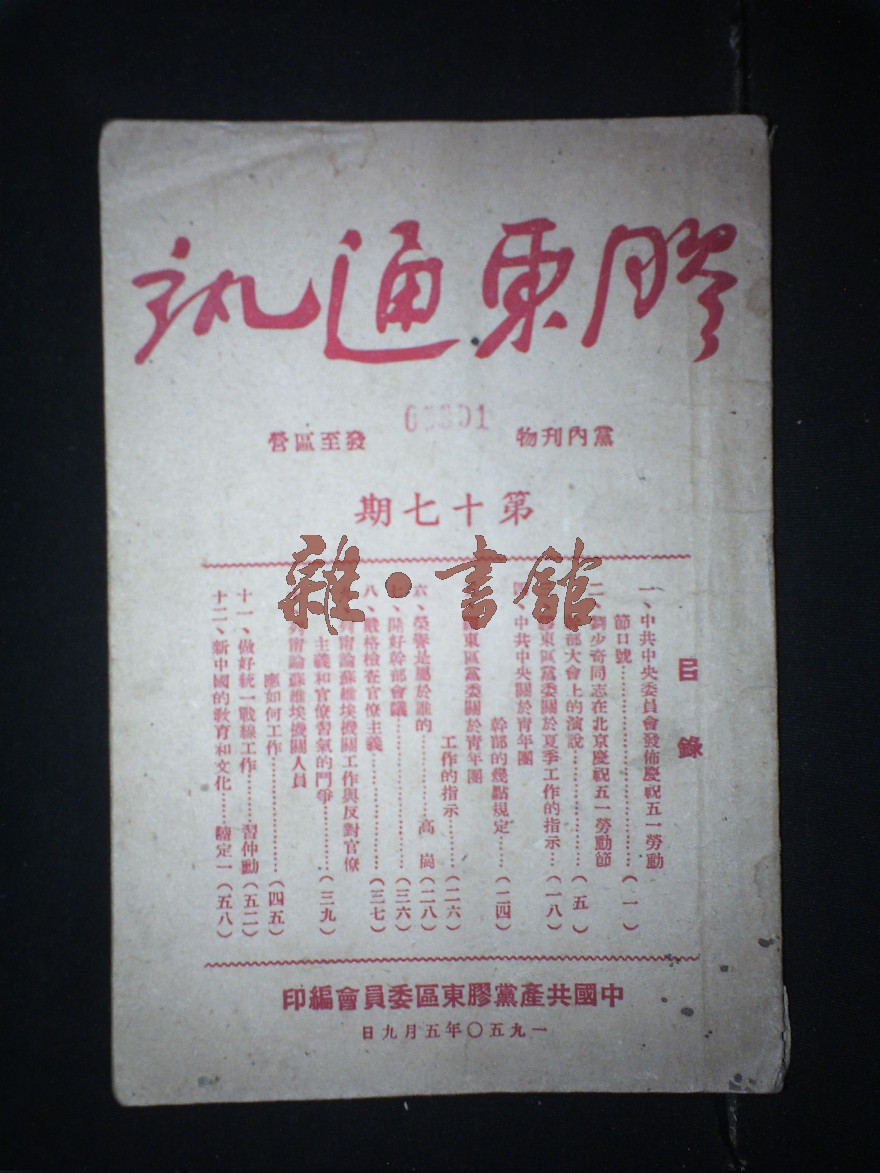 膠東通訊
黨內刊物 發至區營
第十七期
雜·書館
目錄
一、中共中央委員會發佈慶祝五一勞動
節口號…………(一)
二、劉少奇同志在北京慶祝五一勞動節
幹部大會上的演說…………(五)
東區黨委關於夏季工作的指示…(一八)
四、中共中央關於青年團
幹部的幾點規定……(二四)
東區黨委關於青年團
工作的指示…………(二六)
六、榮譽是屬於誰的…………高崗(二八)
七、開好幹部會議…………(三六)
八、嚴格檢查官僚主義…………(三七)
列甯論蘇維埃機關工作與反對官僚
主義和官僚習氣的鬥爭…………(三九)
列甯論蘇維埃機關人員
應如何工作…………(四五)
十一、做好統一戰線工作……習仲勳(五二)
十二、新中國的教育和文化……陸定一(五八)
中國共產黨膠東區委員會編印
一九五〇年五月九日